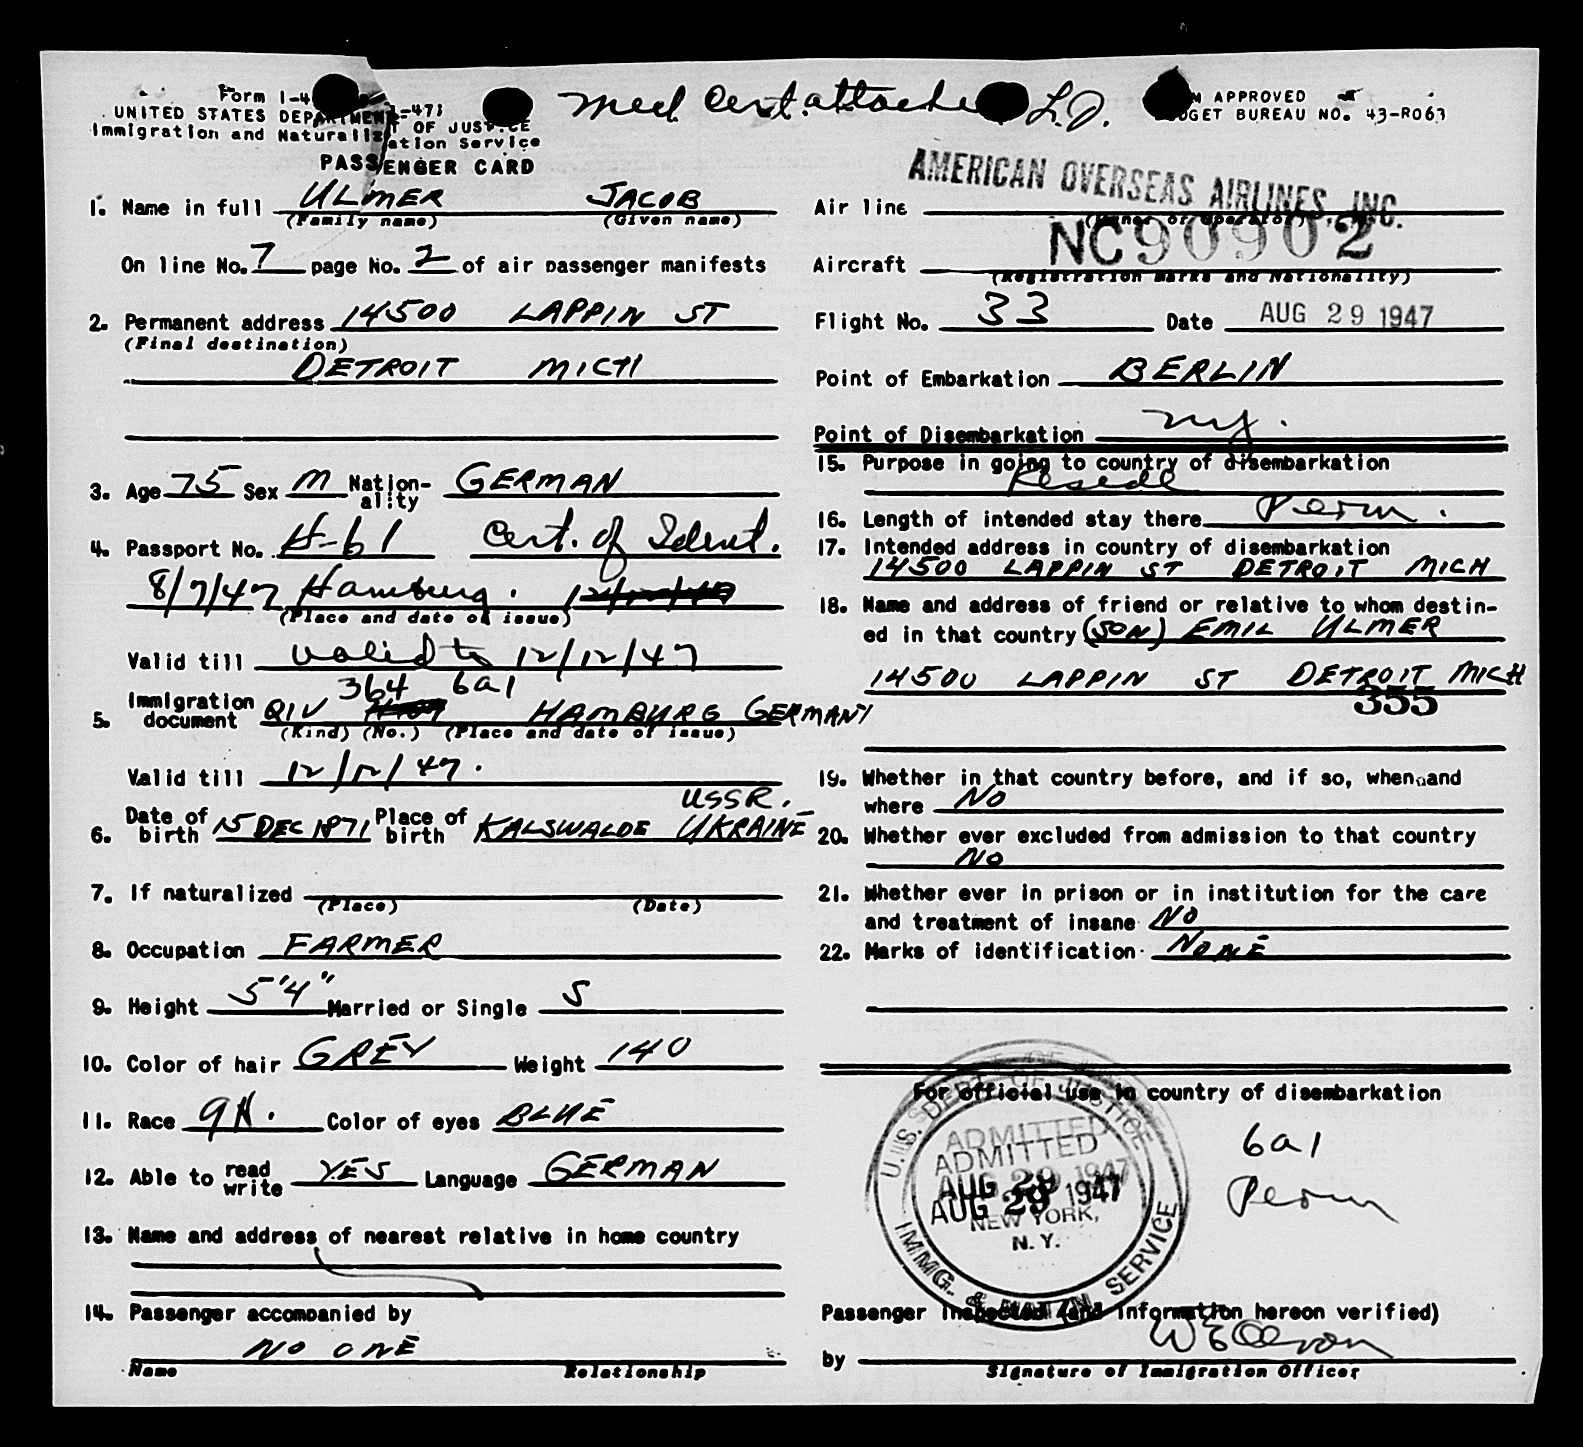 Form I-4
I-471
UNITED STATES DEPARTMENT OF JUSTICE
Immigration and Naturalization Service
PASSENGER CARD
Med. Cert. attached L.D.
FORM APPROVED
BUDGET BUREAU NO. 43-R063
1. Name in full ULMER JACOB
(Family name) (Given name)
On line No. 7 page No. 2 of air passenger manifests
2. Permanent address 14500 LAPPIN ST
(Final destination)
DETROIT MICH
3. Age 75 Sex M Nation-ality GERMAN
4. Passport No. H-61 Cert. of Ident.
8/7/47 Hamburg.
(Place and date of issue)
Valid till Valid to 12/12/47
364 6a1
5. Immigration document QIV HAMBURG GERMANY
(Kind) (No.) (Place and date of issue)
Valid till 12/12/47.
USSR.
6. Date of birth 15 DEC 1871 Place of birth KALSWALDE UKRAINE
7. If naturalized
(Place) (Date)
8. Occupation FARMER
9. Height 5'4" Married or Single S
10. Color of hair GREY Weight 140
11. Race Color of eyes BLUE
12. Able to read write YES Language GERMAN
13. Name and address of nearest relative in home country
14. Passenger accompanied by
NO ONE
Name Relationship
Air line AMERICAN OVERSEAS AIRLINES, INC.
(Owner or operator)
Aircraft NC90902
(Registration marks and Nationality)
Flight No. 33 Date AUG 29 1947
Point of Embarkation BERLIN
Point of Disembarkation NY.
15. Purpose in going to country of disembarkation
Reside
16. Length of intended stay there Perm.
17. Intended address in country of disembarkation
14500 LAPPIN ST DETROIT MICH
18. Name and address of friend or relative to whom destin-
ed in that country (SON) EMIL ULMER
14500 LAPPIN ST DETROIT MICH
355
19. Whether in that country before, and if so, when and
where NO
20. Whether ever excluded from admission to that country
NO
21. Whether ever in prison or in institution for the care
and treatment of insane NO
22. Marks of identification NONE
For official use in country of disembarkation
U.S. DEPT. OF JUSTICE
ADMITTED
ADMITTED
AUG 29 1947
AUG 29 1947
NEW YORK,
N. Y.
IMMG. & NATZN. SERVICE
6a1
Perm
Passenger inspected (and information hereon verified)
by
Signature of Immigration Officer